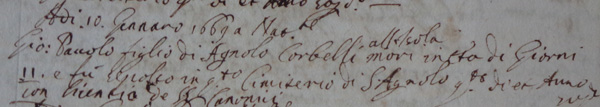 Adi 10. Gennaro 1669 a Nat.te
Gio: Pauolo figlio di Agnolo Corbelsi all'isola morì in età di Giorni
11. e fu sepolto in q.to Cimiterio di S. Agnolo q.to di et Anno
con licentia de SS. Canonici